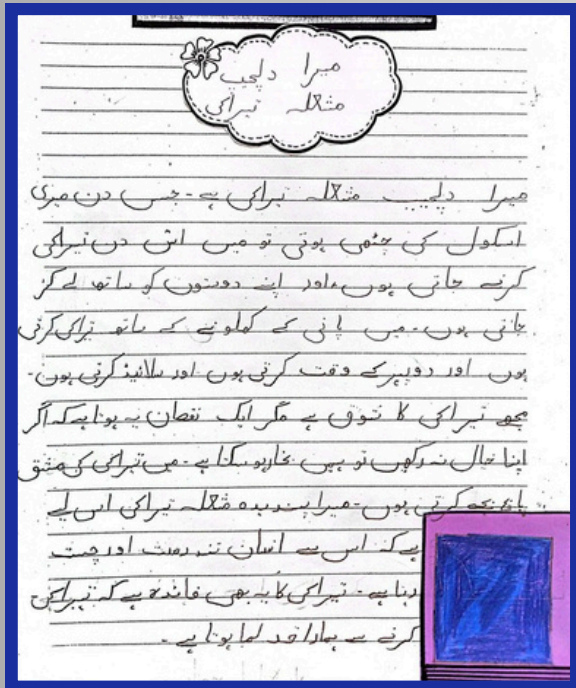 میرا دلچسپ
مشغلہ تیراکی
میرا دلچسپ مشغلہ تیراکی ہے۔ جس دن میری
اسکول کی چھٹی ہوتی تو میں اس دن تیراکی
کرنے جاتی ہوں، اور اپنے دوستوں کو ساتھ لے کر
جاتی ہوں۔ میں پانی کے کھلونے کے ساتھ تیراکی کرتی
ہوں اور دوپہر کے وقت کرتی ہوں اور سلائیڈ کرتی ہوں۔
مجھے تیراکی کا شوق ہے مگر ایک نقصان یہ ہوتا ہے کہ اگر
اپنا خیال نہ رکھیں تو ہمیں بخار ہو سکتا ہے۔ میں تیراکی کی مشق
پانچ بجے کرتی ہوں۔ میرا پسندیدہ مشغلہ تیراکی اس لیے
ہے کہ اس سے انسان تندرست اور چست
رہتا ہے۔ تیراکی کا یہ بھی فائدہ ہے کہ تیراکی
کرنے سے ہمارا قد لمبا ہوتا ہے۔